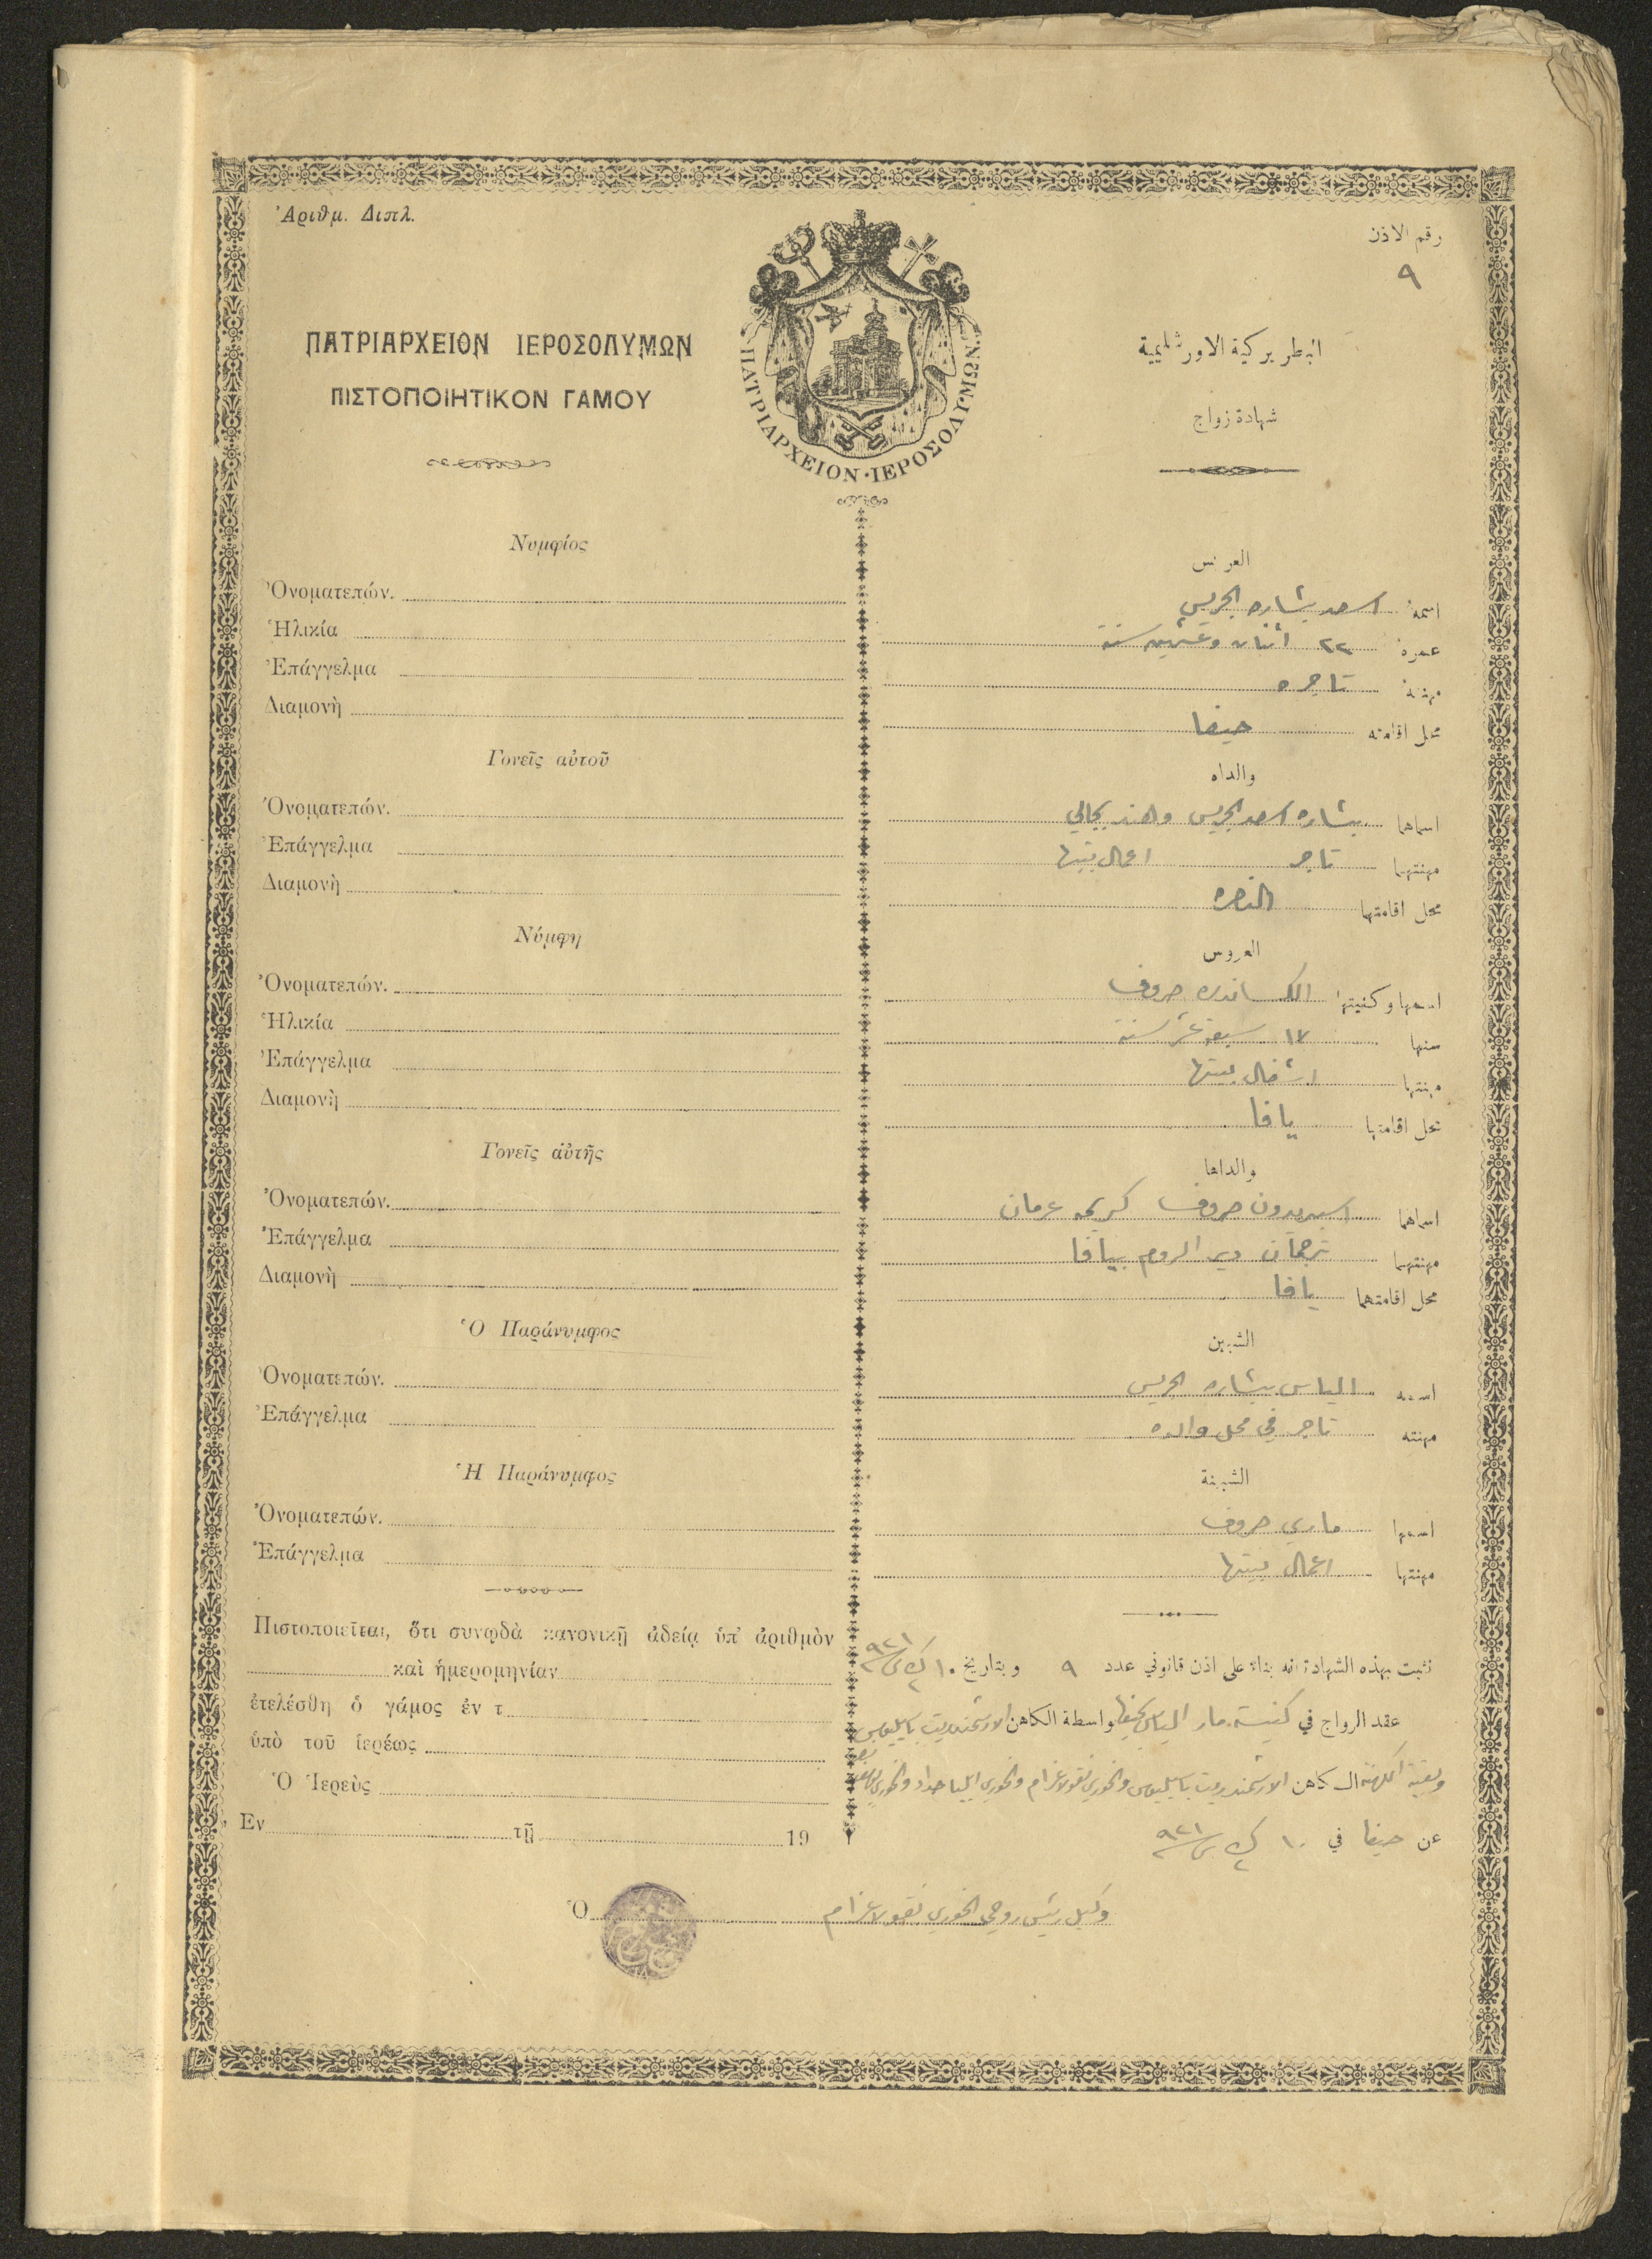 Ἀριθμ. Διπλ.
رقم الاذن
٩
ΠΑΤΡΙΑΡΧΕΙΟΝ ΙΕΡΟΣΟΛΥΜΩΝ
ΠΙΣΤΟΠΟΙΗΤΙΚΟΝ ΓΑΜΟΥ
ΠΑΤΡΙΑΡΧΕΙΟΝ·ΙΕΡΟΣΟΛΥΜΩΝ·
البطريركية الاورشليمية
شهادة زواج
Νυμφίος
Ὀνοματεπών.
Ἡλικία
Ἐπάγγελμα
Διαμονὴ
Γονεῖς αὐτοῦ
Ὀνοματεπών.
Ἐπάγγελμα
Διαμονὴ
Νύμφη
Ὀνοματεπών.
Ἡλικία
Ἐπάγγελμα
Διαμονὴ
Γονεῖς αὐτῆς
Ὀνοματεπών.
Ἐπάγγελμα
Διαμονὴ
Ὁ Παράνυμφος
Ὀνοματεπών.
Ἐπάγγελμα
Ἡ Παράνυμφος
Ὀνοματεπών.
Ἐπάγγελμα
Πιστοποιεῖται, ὅτι συνῳδὰ κανονικῇ ἀδείᾳ ὑπ' ἀριθμὸν
καὶ ἡμερομηνίαν
ἐτελέσθη ὁ γάμος ἐν τ
ὑπὸ τοῦ ἱερέως
Ὁ Ἱερεὺς
Ἐν τῇ 19
العريس
اسمه اسعد بشاره الجريس
عمره ٢٢ اثنان وعشرين سنة
مهنته تاجره
محل اقامته حيفا
والداه
اسماهما بشاره اسعد الجريس وهند
مهنتهما تاجر اعمال بيتها
محل اقامتهما الناصره
العروس
اسمها وكنيتها الكساندره صروف
سنها ١٧ سبعة عشر سنة
مهنتها اشغال بيتها
محل اقامتها يافا
والداها
اسماهما اسبيريدون صروف كريمه عرمان
مهنتهما ترجمان دير الروم بيافا
محل اقامتهما يافا
الشبين
اسمه الياس بشاره الجريس
مهنته تاجر في محل والده
الشبينة
اسمها ماري صروف
مهنتها اعمال بيتها
نثبت بهذه الشهادة انه بناء على اذن قانوني عدد ٩ وبتاريخ ١٠ ك٢ سنة ٩٢١
عقد الزواج في كنيسة مار الياس بحيفا بواسطة الكاهن الارشمندريت باسيليوس
وبقية الكهنة الكاهن الارشمندريت باسيليوس والخوري نقولا عزام والخوري ايليا حداد والخوري
عن حيفا في ١٠ ك٢ سنة ٩٢١
Ὁ وكيل رئيس روحي الخوري نقولا عزام